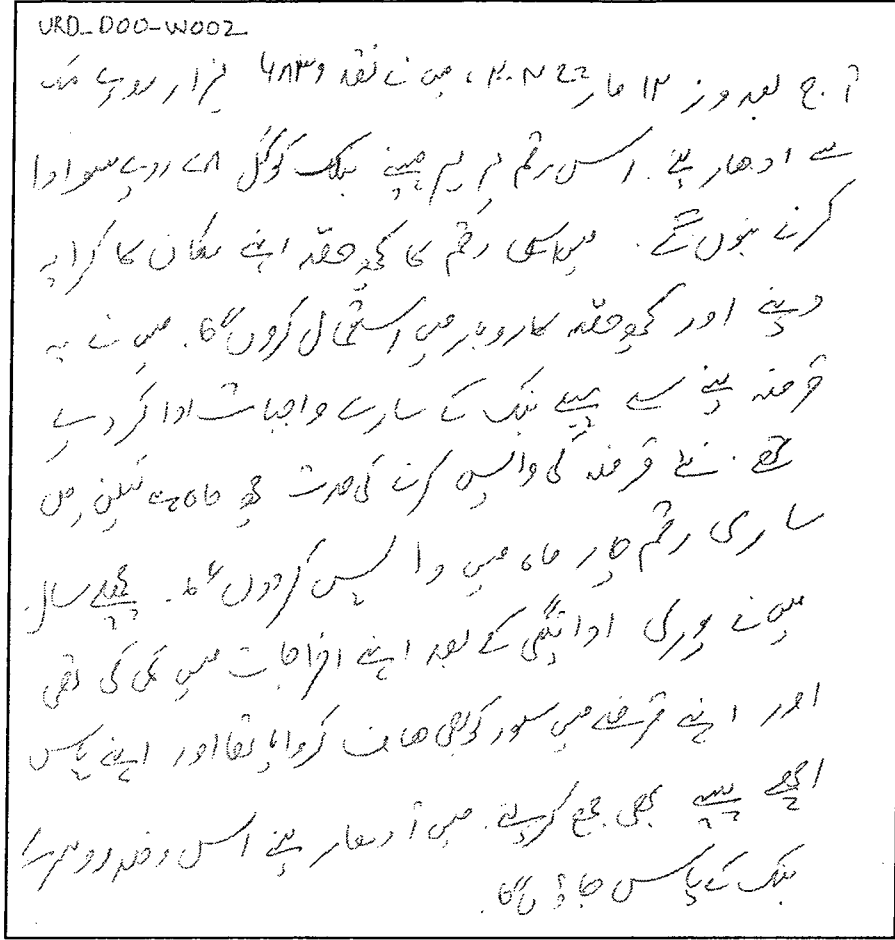 URD_D00-W002
آج بعد روز ۱۲ مارچ ، میں نے نقد ہزار روپے بنک
سے ادھار لئے. اس رقم پر ہر مہینے بنک کو کل روپے سود ادا
کرنے ہوں گے. میں اسی رقم کا کچھ حصہ اپنے مکان کا کرایہ
دینے اور کچھ حصہ کاروبار میں استعمال کروں گا. میں نے یہ
قرضہ لینے سے پہلے بنک کے سارے واجبات ادا کر دیے
تھے. نئے قرضہ کی واپس کرنے کی مدت چھ ماہ ہے لیکن میں
ساری رقم چار ماہ میں واپس کردوں گا. پچھلے سال
میں نے پوری ادائیگی کے بعد اپنے اخراجات میں کمی کی تھی
اور اپنے قرضے میں سود کو بھی معاف کروایا تھا اور اپنے پاس
اچھے پیسے بھی جمع کر لیے. میں ادھار لینے اس دفعہ دوسرے
بنک کے پاس جاؤں گا.